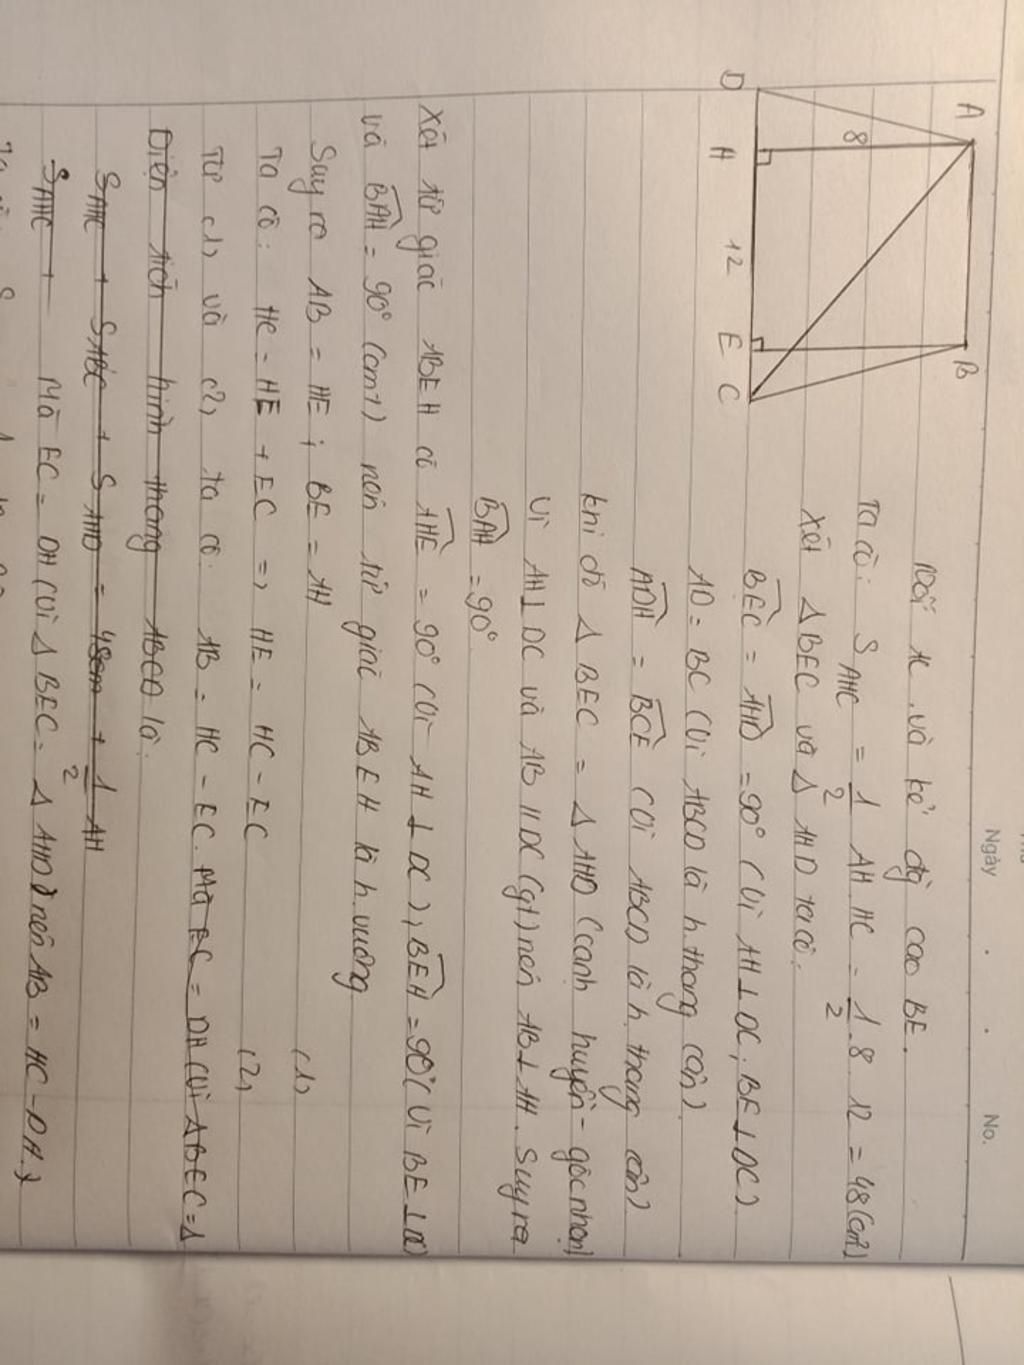 Ngày . . No.
A
B
8
12
D
H
E
C
Nối AC và kẻ đg cao BE.
Ta có: S AHC = 1/2 AH. HC = 1/2 . 8. 12 = 48 (cm²)
Xét Δ BEC và Δ AHD ta có:
BEC = AHD = 90° (Vì AH ⊥ DC; BE ⊥ DC)
AD = BC (Vì ABCD là h. thang cân)
ADH = BCE (Vì ABCD là h. thang cân)
Khi đó Δ BEC = Δ AHD (cạnh huyền - góc nhọn)
Vì AH ⊥ DC và AB // DC (gt) nên AB ⊥ AH. Suy ra
BAH = 90°
Xét tứ giác ABEH có AHE = 90° (Vì AH ⊥ DC), BEH = 90° (Vì BE ⊥ DC)
và BAH = 90° (cmt) nên tứ giác ABEH là h. vuông
Suy ra AB = HE ; BE = AH (1)
Ta có: HC = HE + EC => HE = HC - EC (2)
Từ (1) và (2) ta có: AB = HC - EC. Mà EC = DH (Vì ΔBEC = Δ
Diện tích hình thang ABCD là:
S AHC + S ABC + S AHD = 48cm + 1/2 AH
S AHC + Mà EC = DH (Vì Δ BEC = Δ AHD) nên AB = HC - DH.